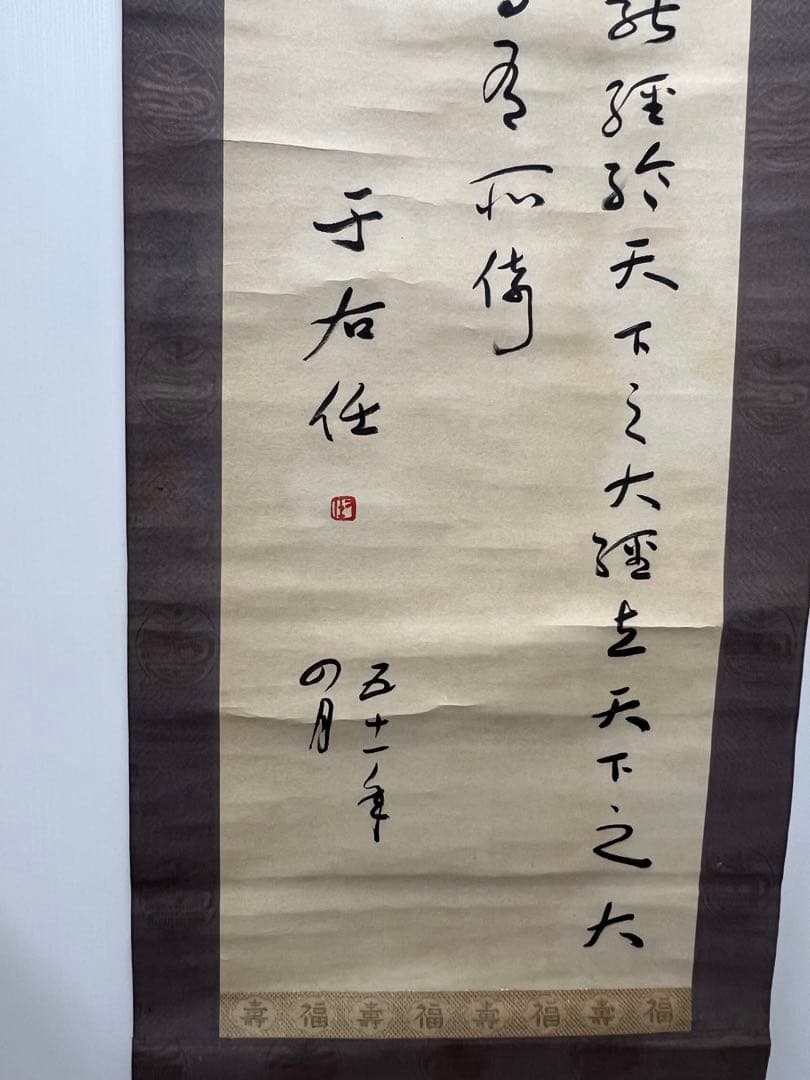 能經綸天下之大經立天下之大
有所倚
于右任
五十一年
四月
壽福壽福壽福壽福